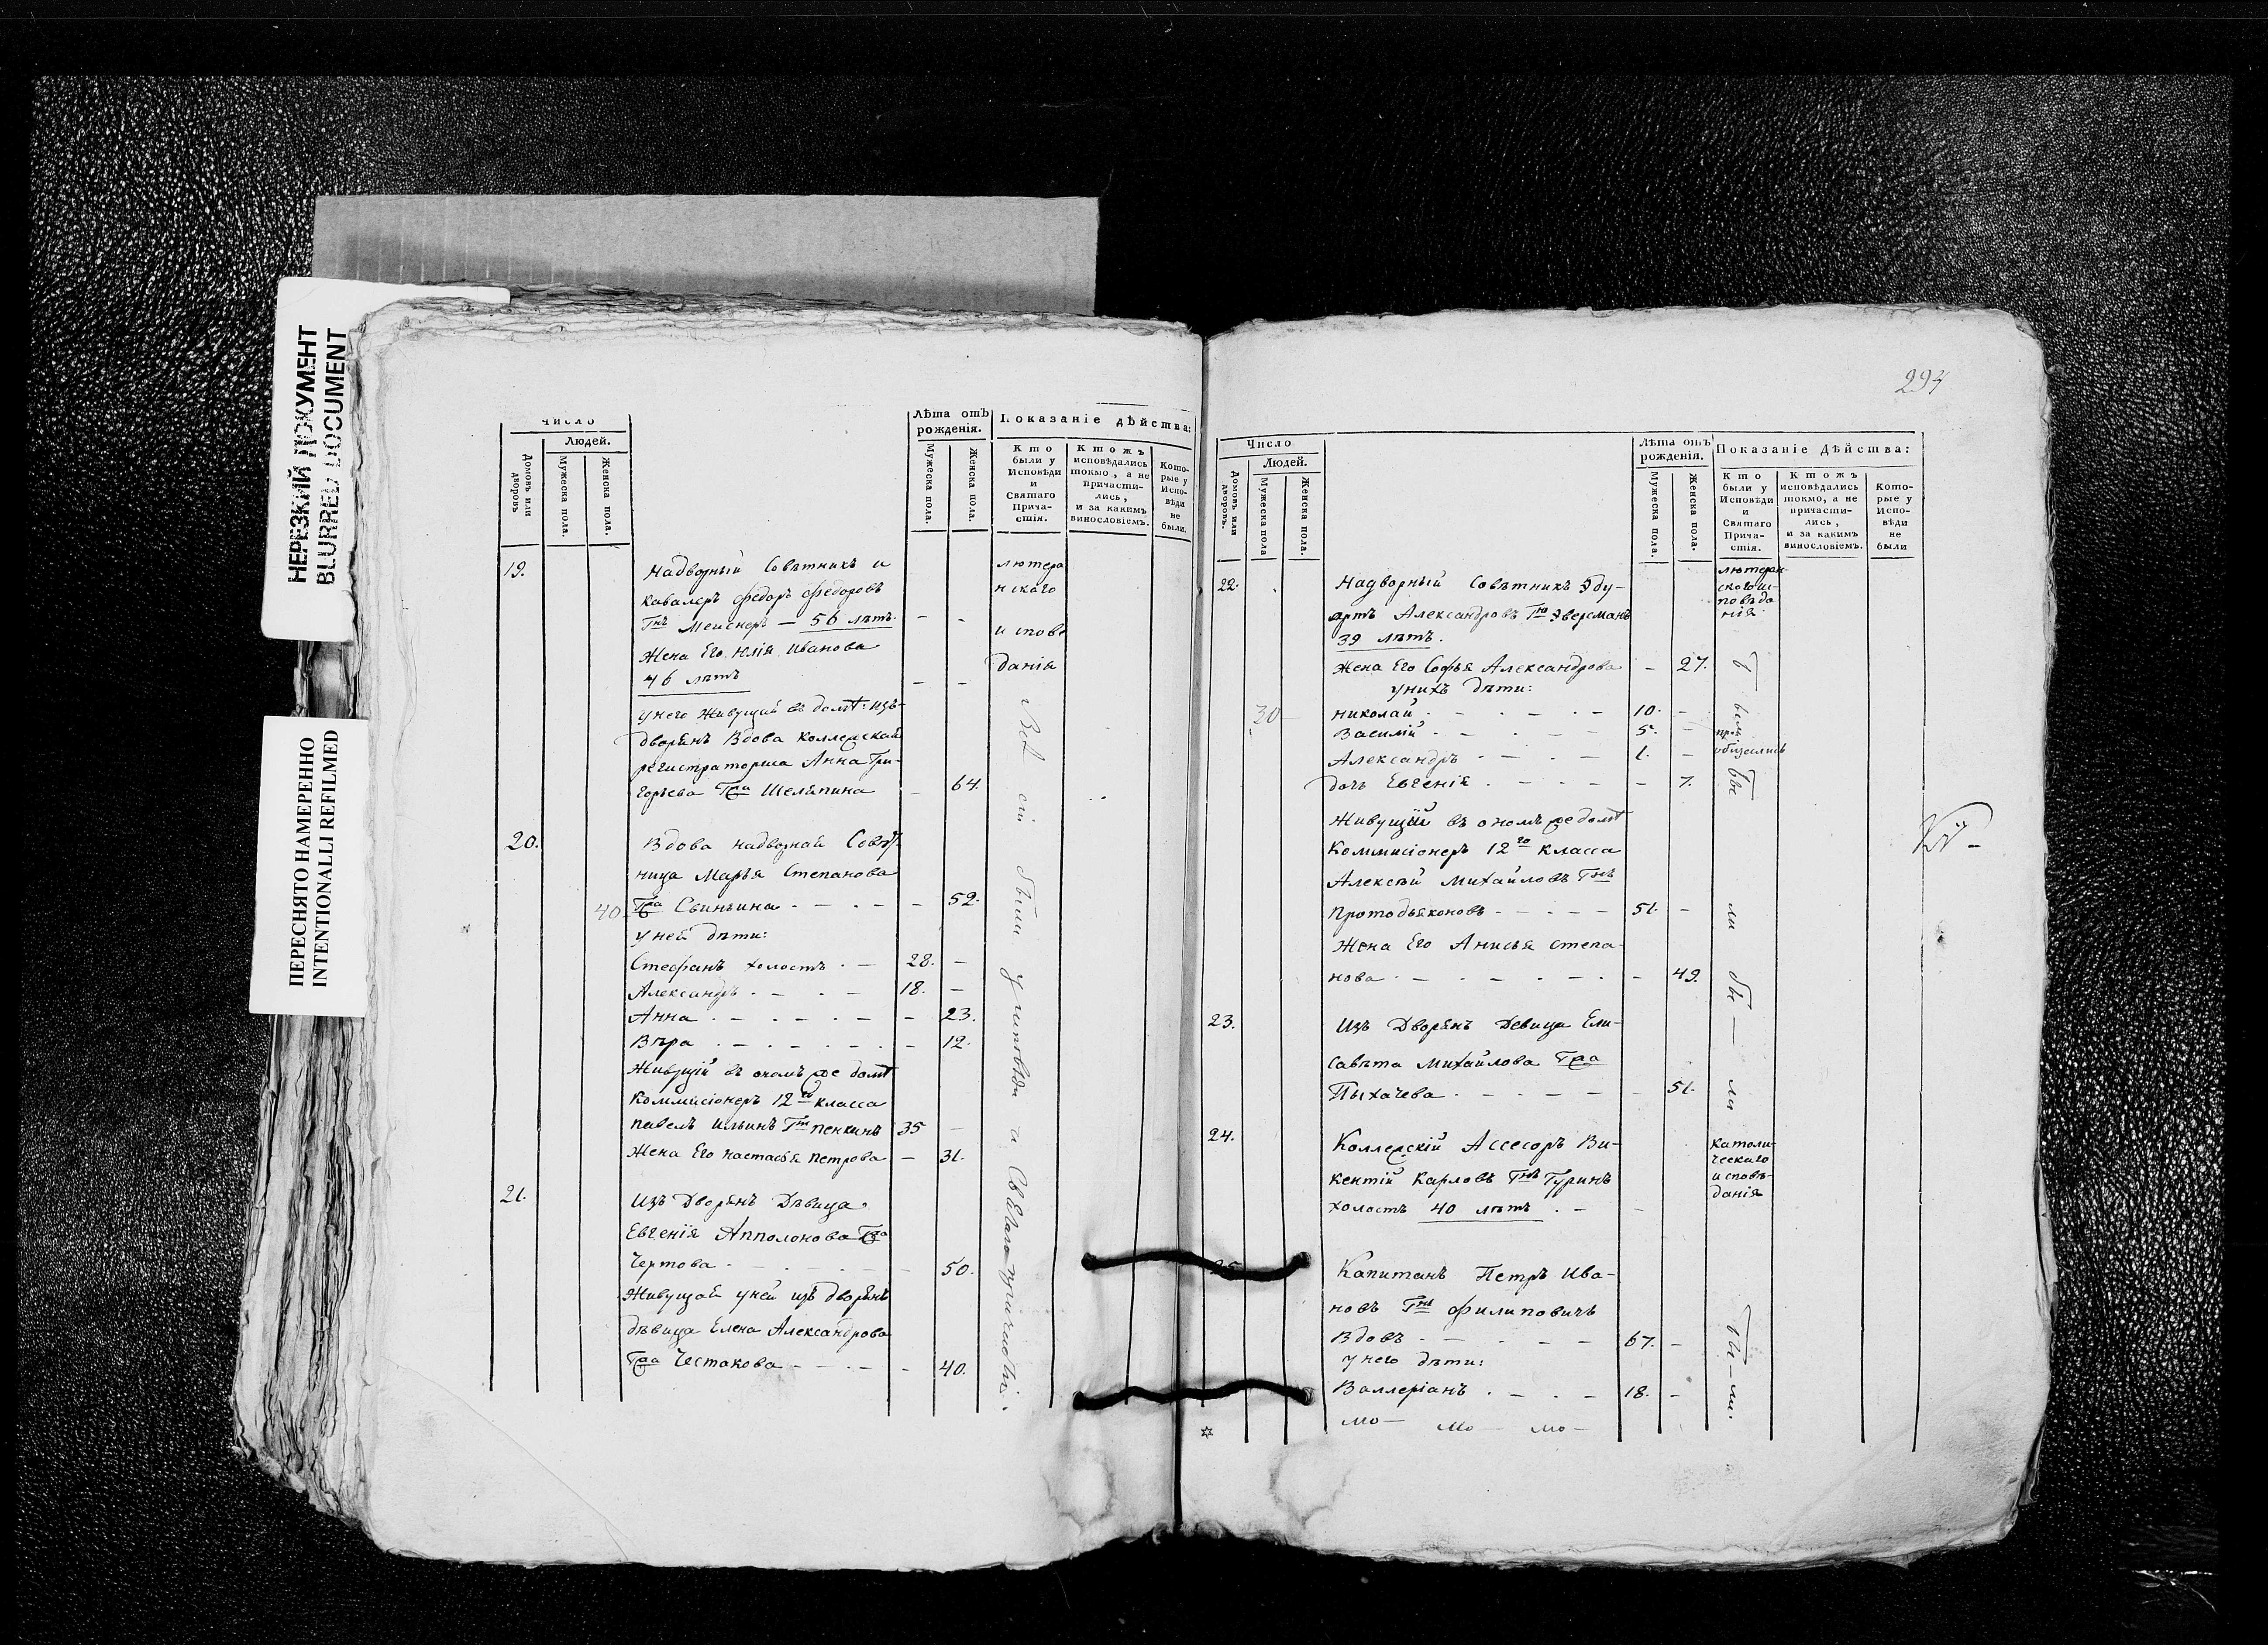 НЕРЕЗКИЙ ДОКУМЕНТ
BLURRED DOCUMENT
ПЕРЕСНЯТО НАМЕРЕННО
INTENTIONALLI REFILMED
Число
Людей.
Домовъ или дворовъ
Мужеска пола.
Женска пола.
Лѣта отъ рожденія.
Мужеска пола.
Женска пола.
Показаніе дѣйства:
Кто были у Исповѣди и Святаго Прича-стія.
Ктожъ исповѣдались токмо, а не причасти-лись, и за какимъ винословіемъ.
Кото-рые у Испо-вѣди не были.
19.
Надворный Совѣтникъ и
Кавалеръ Федоръ Федоровъ
Гнъ Мейснеръ — 56 лѣтъ. - -
Жена Его Юлія Иванова
46 лѣтъ - -
лютера
нскаго
испове
данія
у него Живущая въ домѣ: изъ
дворянъ Вдова Коллежская
регистраторша Анна Гри-
горьева Гжа Шеляпина - 64.
20. Вдова надворная Совѣт-
ница Марья Степанова
40. Гжа Свиньина - 52.
у ней дѣти:
Стефанъ холостъ 28. -
Александръ 18. -
Анна - 23.
Вѣра - 12.
Живущій въ ономъ же домѣ
Коммисіонеръ 12го класса
Павелъ Ильинъ Гнъ Пенкинъ 35 -
Жена Его Настасья Петрова - 31.
21. Изъ Дворянъ Дѣвица
Евгенія Апполонова Гжа
Чертова - 50.
Живущая у ней изъ дворянъ
дѣвица Елена Александрова
Гжа Честакова - 40.
Всѣ сіи были у исповѣди и Святаго причастія.
Число
Людей.
Домовъ или дворовъ.
Мужеска пола
Женска пола.
Лѣта отъ рожденія.
Мужеска пола.
Женска пола.
Показаніе Дѣйства:
Кто были у Исповѣди и Святаго Прича-стія.
Ктожъ исповѣдались токмо, а не причасти-лись, и за какимъ винословіемъ.
Кото-рые у Испо-вѣди не были
22. Надворный Совѣтникъ Эду-
артъ Александровъ Гнъ Эверсманъ
39 лѣтъ.
лютеран-
скаго ис-
повѣда
нія
Жена Его Софья Александрова - 27.
у нихъ дѣти:
30 Николай 10. -
Василій 5. -
Александръ 1. -
дочь Евгенія - 7.
Живущій въ ономъ же домѣ
Коммисіонеръ 12го класса
Алексѣй Михайловъ Гнъ
Протодьяконовъ 51. -
Жена Его Анисья Степа-
нова - 49.
23. Изъ Дворянъ Девица Ели-
савѣта Михайлова Гжа
Пыхачева - 51.
24. Коллежскій Ассесоръ Ви-
кентій Карловъ Гнъ Туринъ
холостъ 40 лѣтъ - -
католи-
ческаго
исповѣ-
данія
25. Капитанъ Петръ Ива-
новъ Гнъ Филиповичъ
Вдовъ 67. -
у него дѣти:
Валлеріанъ 18. -
мо— мо— мо—